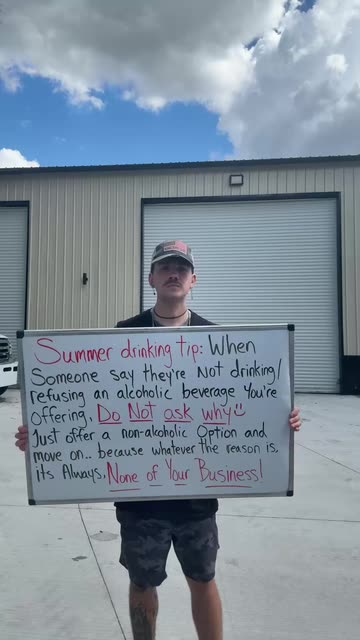 Summer drinking tip: When
Someone say they're Not drinking/
refusing an alcoholic beverage You're
Offering, Do Not ask why
Just offer a non-alcoholic Option and
move on.. because whatever the reason is,
its Always, None of Your Business!